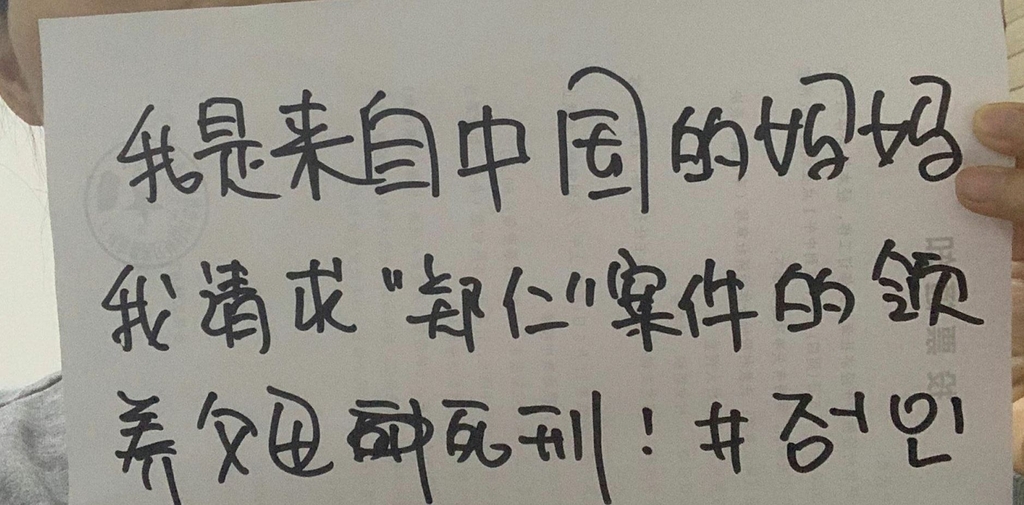 我是来自中国的妈妈
我请求“郑仁”案件的领
养父母死刑！#정인